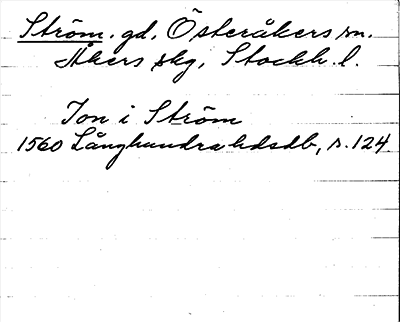 Ström. gd, Österåkers sn.
Åkers skg, Stockh. l.
Jon i Ström
1560 Långhundra hdsdb, s. 124